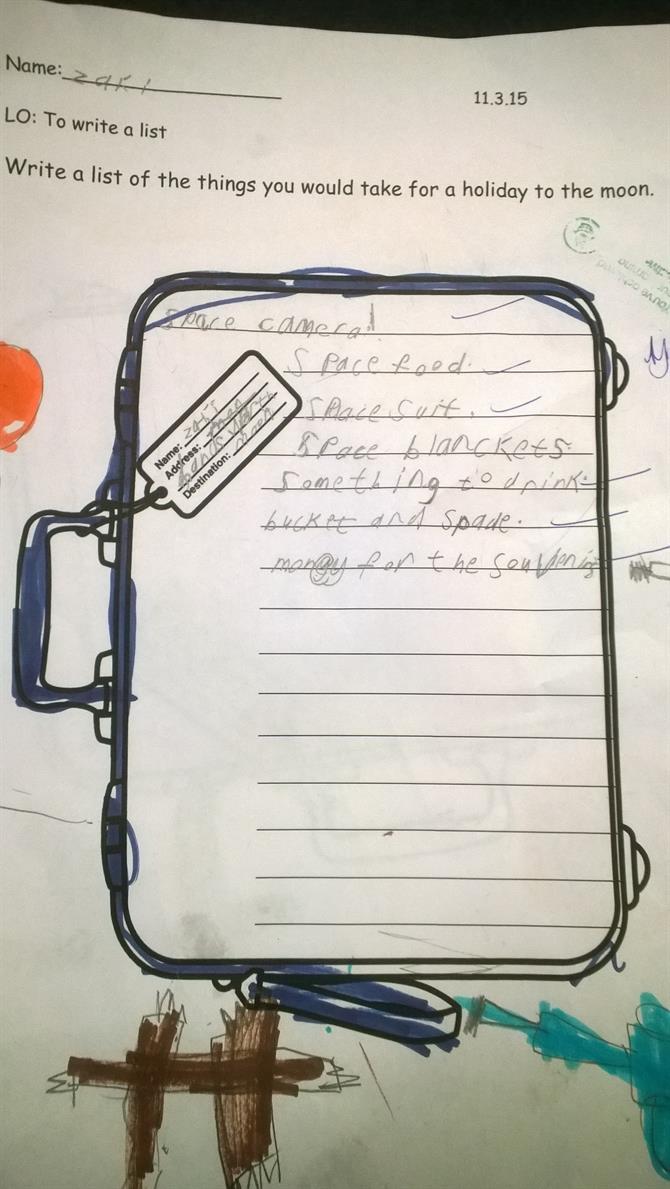 Name: zaki
11.3.15
LO: To write a list
Write a list of the things you would take for a holiday to the moon.
Space camera!
Space food.
Space suit.
Space blanckets.
Something to drink.
bucket and spade.
money for the souvenis
Name: zaki
Address:
Destination: moon